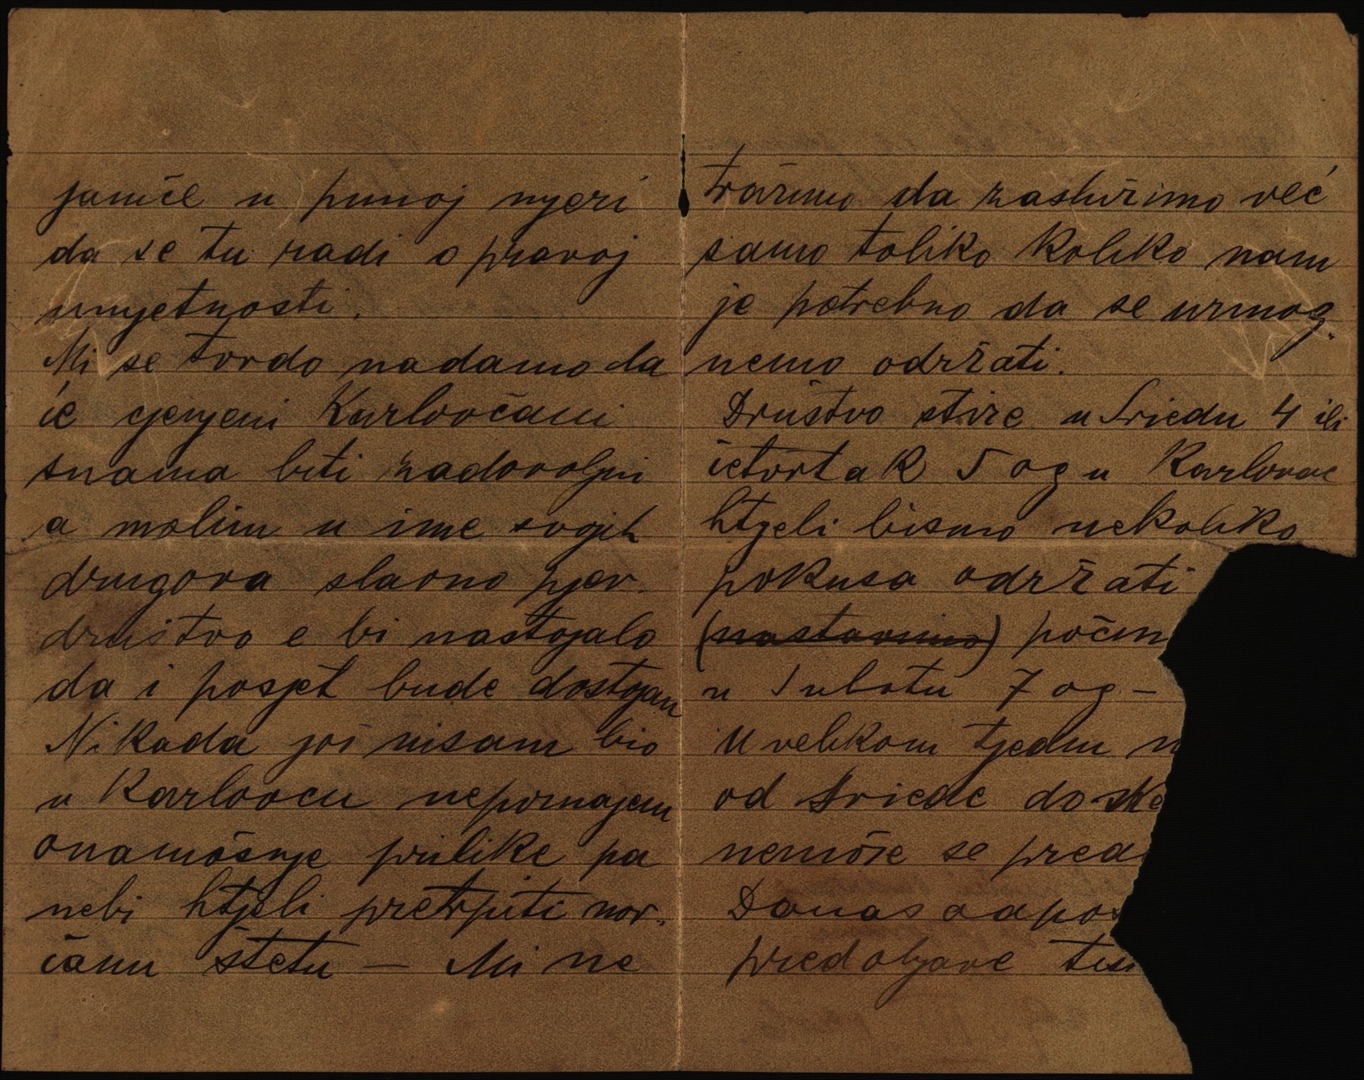 jamče u punoj mjeri
da se tu radi o pravoj
umjetnosti.
Mi se tvrdo nadamo da
će cjenjeni Karlovčani
snama biti zadovoljni
a molim u ime svojih
drugova slavno pjev.
društvo e bi nastojalo
da i posjet bude dostojan
Nikada još nisam bio
u Karlovcu nepoznajem
onamošnje prilike pa
nebi htjeli pretrpiti nov.
čanu štetu — Mi ne
tražimo da zaslužimo već
samo toliko koliko nam
je potrebno da se uzmog.
nemo održati.
Društvo stiže u Sriedu 4 ili
četvrtak 5 og u Karlovac
htjeli bismo nekoliko
pokusa održati
(nastavimo) počim
u Subotu 7 og –
U velikom tjednu n
od Sriede do
nemože se pred
Danas
predobjave